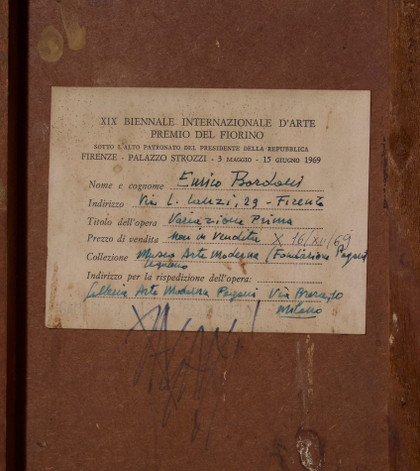 XIX BIENNALE INTERNAZIONALE D'ARTE
PREMIO DEL FIORINO
SOTTO L'ALTO PATRONATO DEL PRESIDENTE DELLA REPUBBLICA
FIRENZE - PALAZZO STROZZI - 3 MAGGIO - 15 GIUGNO 1969
Nome e cognome Enrico Bordoni
Indirizzo Via L. Lanzi, 29 - Firenze
Titolo dell'opera Variazione Prima
Prezzo di vendita non in vendita X 16/XII/69
Collezione Museo Arte Moderna (Fondazione Pagani
Legnano
Indirizzo per la rispedizione dell'opera:
Galleria Arte Moderna Pagani Via
Milano